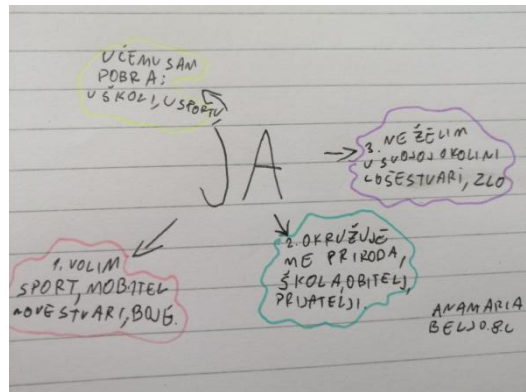 UČEMU SAM
POBRA:
UŠKOLI, USPORTU,
JA
3. NE ŽELIM
U SVOJOJ OKOLINI
LOŠESTVARI, ZLO
1. VOLIM
SPORT, MOBITEL
NOVESTVARI, BOJE.
2. OKRUŽUJE
ME PRIRODA,
ŠKOLA, OBITELJ,
PRIJATELJI.
ANAMARIA